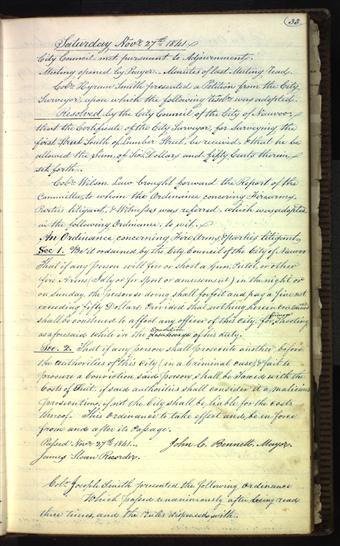 33.
Saturday Novr. 27th. 1841.
City Council met pursuant to Adjournment.
Meeting opened by Prayer. Minutes of last Meeting read.
Colr. Hyrum Smith presented a Petition from the City
Surveyor, upon which the following Resolr. was adopted.
Resolved by the City Council of the City of Nauvoo,
that the Certificate of the City Surveyor, for Surveying the
first Street South of Lumber Street, be received, & that he be
allowed the Sum of Two Dollars and fifty Cents therein
set forth.
Colr. Wilson Law brought forward the Report of the
Committee, to whom the Ordinance concerning Firearms,
Parties litigant, & Witnesses was referred, which was adopted
in the following Ordinance, to wit.
An Ordinance concerning Firearms, & parties litigant.
Sec. 1. Be it ordained by the City Council of the City of Nauvoo
That if any person will fire or shoot a Gun, Pistol, or other
fire Arms, (idly or for sport or amusement) in the night or
on Sunday, the person so doing shall forfeit and pay a fine not
exceeding fifty Dollars. Provided that nothing herein contained
shall be construed to affect any officer of this City, for Shooting
as aforesaid while in the Execution of his duty.
Sec. 2. That if any person shall prosecute another before
the authorities of this City (in a Criminal case) & fail to
procure a Conviction, said person, shall be taxed with the
Costs of Suit, if said authorities shall consider it a malicious
prosecution, if not the City shall be liable for the costs
thereof. This Ordinance to take effect and be in force
from and after its Passage.
Passed Novr. 27th 1841. John C. Bennett, Mayor.
James Sloan Recorder.
Colr. Joseph Smith presented the following Ordinance
Which passed unanimously after being read
three times, and the Rules dispensed with.